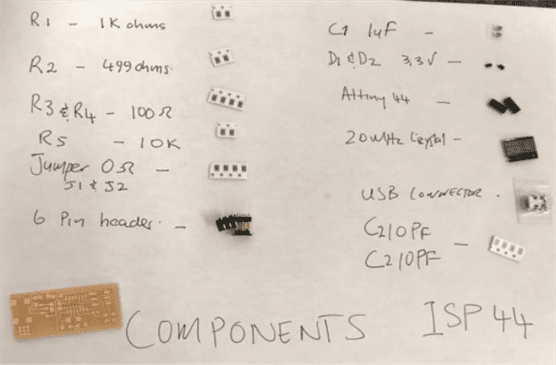 R1 - 1K ohms
R2 - 499 ohms.
R3 & R4 - 100Ω
R5 - 10K
Jumper 0Ω -
J1 & J2
6 Pin header. -
C1 1uF -
D1 & D2 3.3V -
Attiny 44 -
20 MHz Crystal -
USB CONNECTOR.
C210PF -
C210PF
COMPONENTS ISP 44